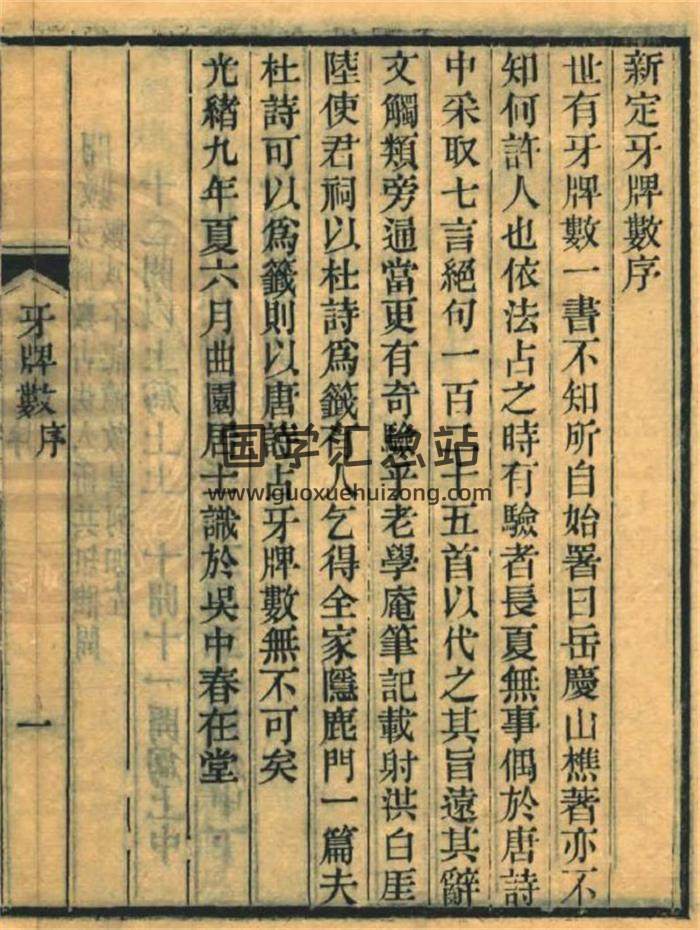 新定牙牌數序
世有牙牌數一書不知所自始署曰岳慶山樵著亦不
知何許人也依法占之時有驗者長夏無事偶於唐詩
中采取七言絕句一百二十五首以代之其旨遠其辭
文觸類旁通當更有奇驗乎老學庵筆記載射洪白厓
陸使君祠以杜詩爲籤有人乞得全家隱鹿門一篇夫
杜詩可以爲籤則以唐詩占牙牌數無不可矣
光緒九年夏六月曲園居士識於吳中春在堂
牙牌數 序
一
国学汇总站
www.guoxuehuizong.com